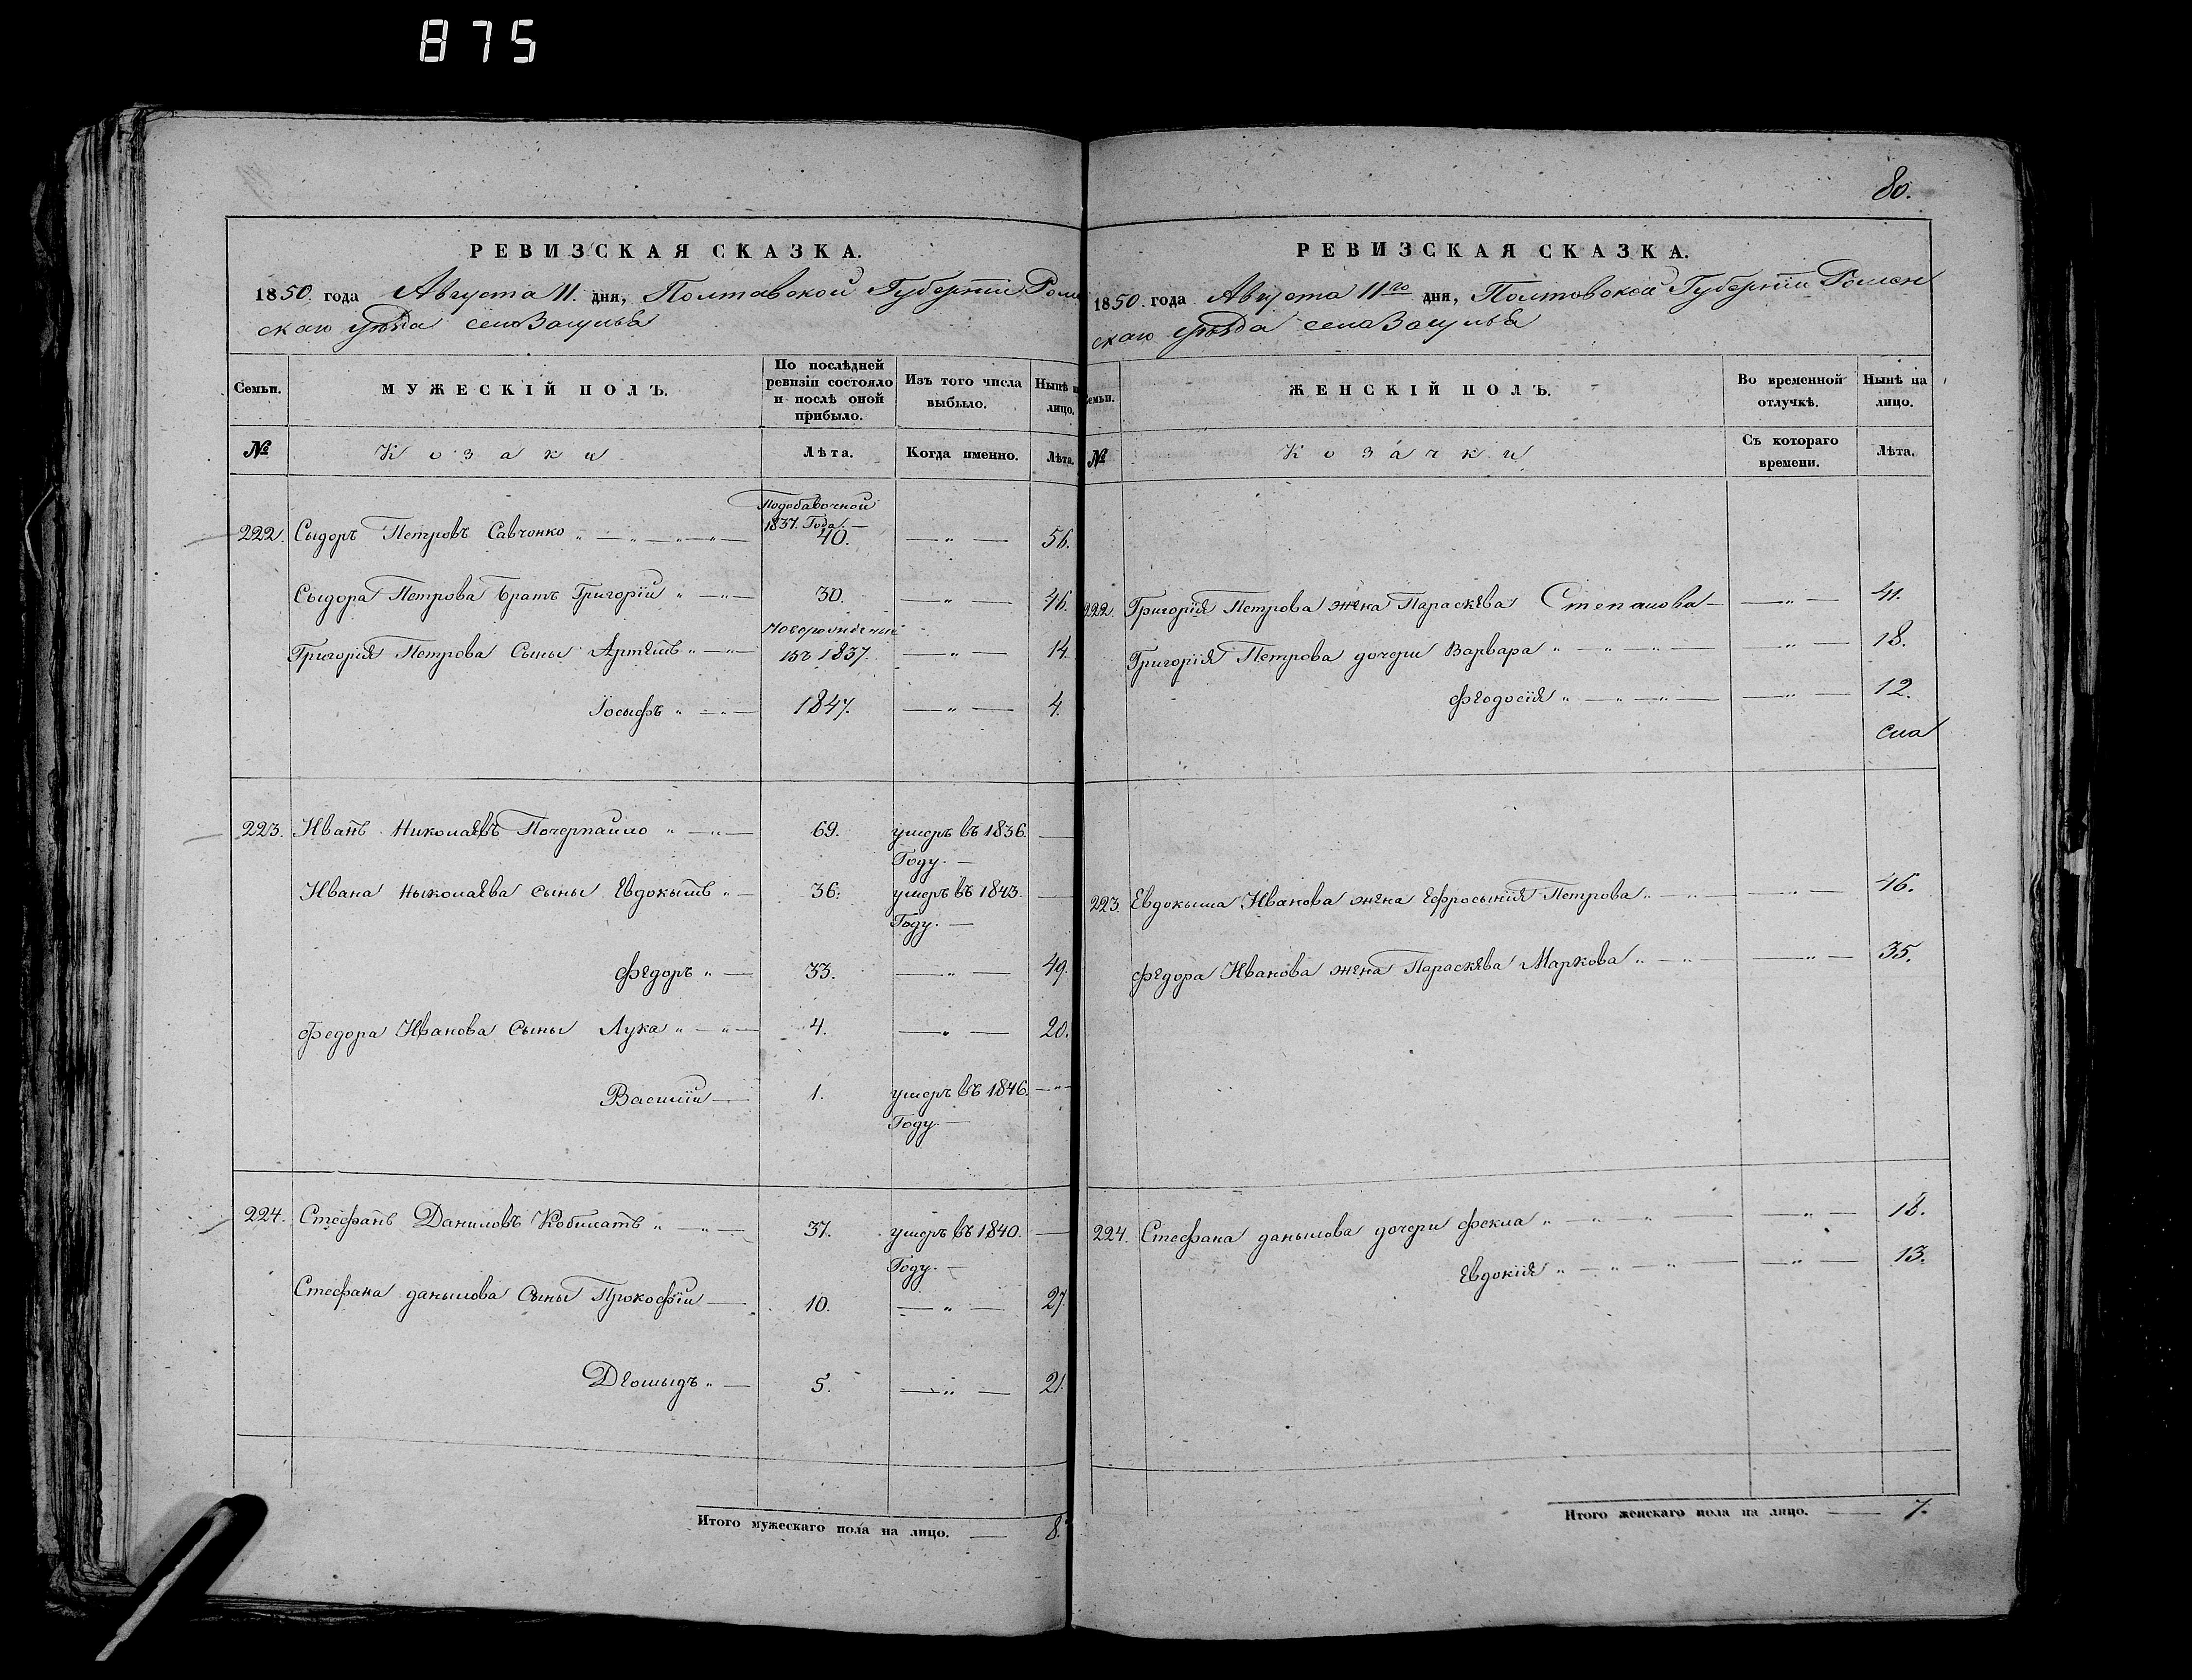 875
80.
РЕВИЗСКАЯ СКАЗКА.
1850. года Августа 11. дня, Полтавской Губерніи Ромен
скаго уѣзда села Засулья
По послѣдней
ревизіи состояло
и послѣ оной
прибыло.
Изъ того числа
выбыло.
Нынѣ на
лицо.
Семьи.
МУЖЕСКІЙ ПОЛЪ.
№
Козаки
Лѣта.
Когда именно.
Лѣта.
Подобавочной
1837. Года. —
222. Сыдоръ Петровъ Савчонко „ — „ — „ — „ — 40. — „ — 56.
Сыдора Петрова братъ Григорій „ — „ — 30. — „ — 46.
Новорожденны
Григорія Петрова Сыны Артемъ „ — „ — въ 1837. — „ — 14.
Іосыфъ „ — „ — 1847. — „ — 4.
223. Иванъ Николаевъ Почерпайло „ — „ — 69. умеръ въ 1836. —
Году. —
Ивана Ныколаева сыны Евдокымъ „ — 36. умеръ въ 1843. —
Году. —
Федоръ „ — 33. — „ — 49.
Федора Иванова Сыны Лука „ — „ — 4. — „ — 20.
Василій — 1. умеръ въ 1846. — „ —
Году —
224. Стефанъ Даниловъ Кобилатъ „ — „ — 37. умеръ въ 1840. —
Году. —
Стефана данылова Сыны Прокофій — 10. — „ — 27.
Деомыдъ „ — 5. — „ — 21.
Итого мужескаго пола на лицо. — 8.
РЕВИЗСКАЯ СКАЗКА.
1850. года Августа 11го дня, Полтовской Губерніи Ромен
скаго уѣзда села Засулья
Семьи.
ЖЕНСКІЙ ПОЛЪ.
Во временной
отлучкѣ.
Нынѣ на
лицо.
№
Козачки
Съ котораго
времени.
Лѣта.
222. Григорія Петрова жена Параскева Степанова — — „ — 41.
Григорія Петрова дочери Варвара „ — „ — „ — — „ — 18.
Феодосія „ — „ — „ — — „ — 12.
223. Евдокыма Иванова жена Ефросынія Петрова „ — „ — — „ — 46.
Федора Иванова жена Параскева Маркова „ — „ — — „ — 35.
224. Стефана данылова дочери Фекла „ — „ — „ — — „ — 18.
Евдокія „ — „ — „ — — „ — 13.
Итого женскаго пола на лицо. — 7.